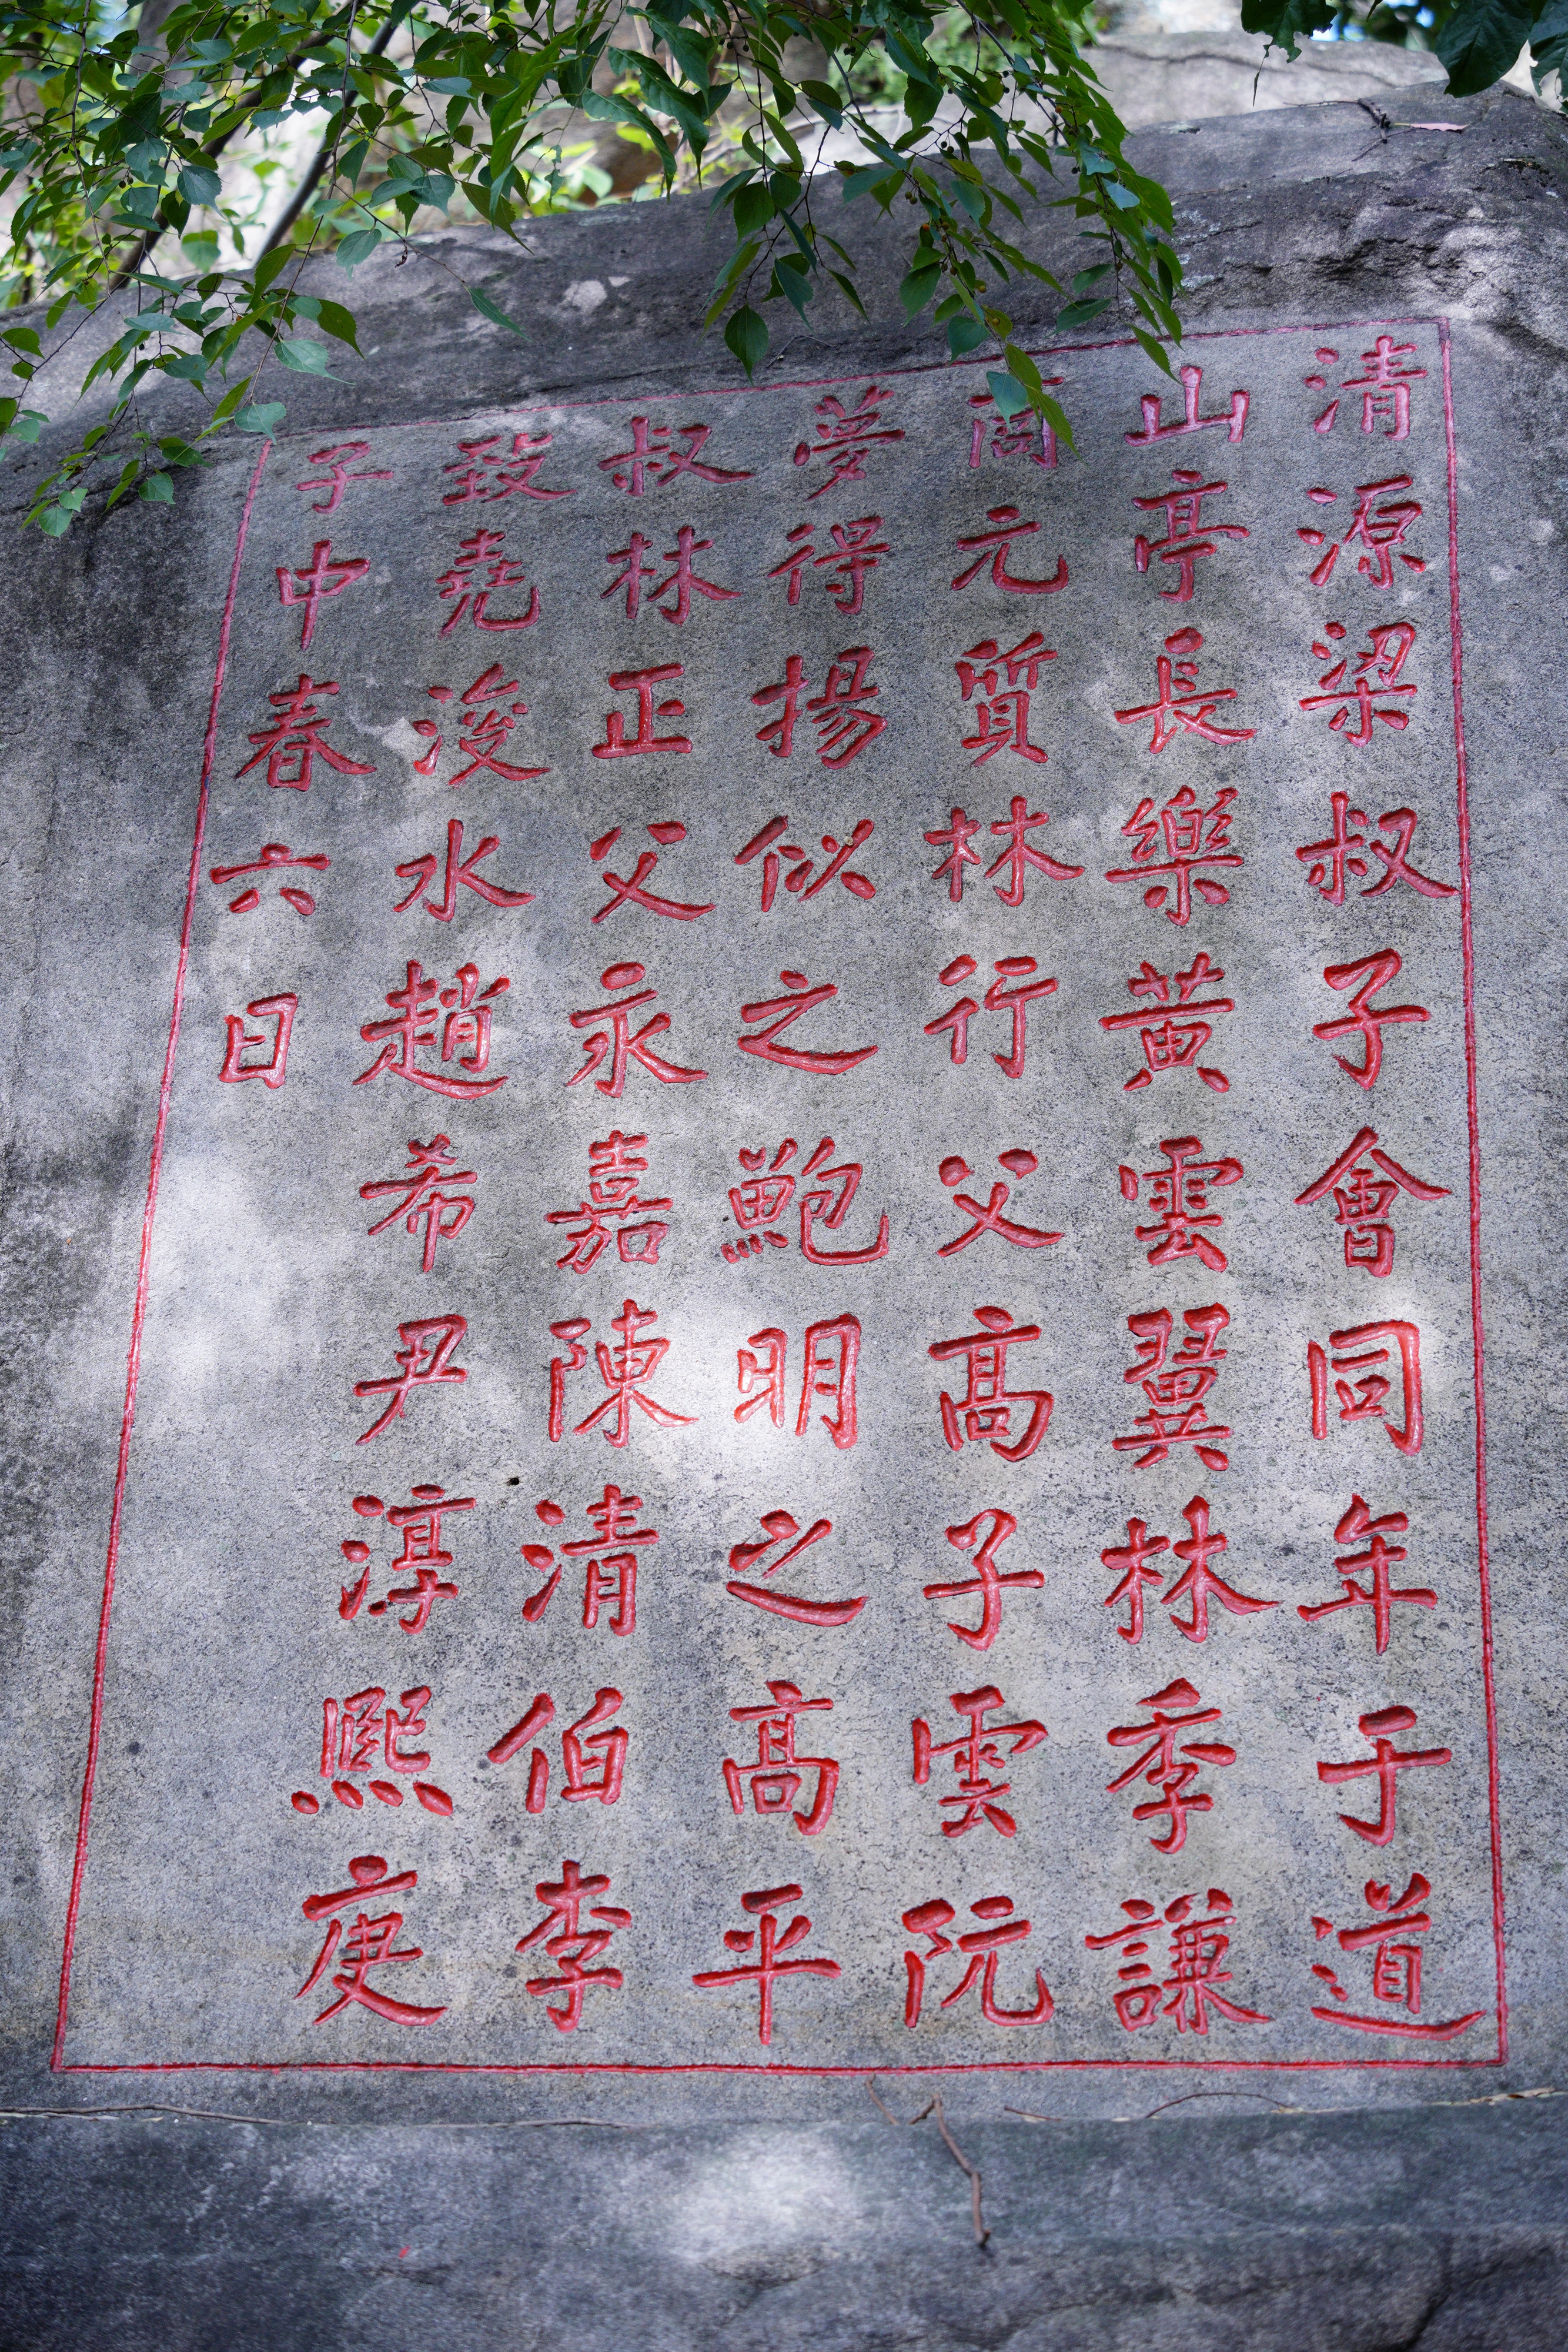 清源梁叔子會同年于道
山亭長樂黃雲翼林季謙
元質林行父高子雲阮
夢得揚似之鮑明之高平
叔林正父永嘉陳清伯李
致堯浚水趙希尹淳熙庚
子中春六日